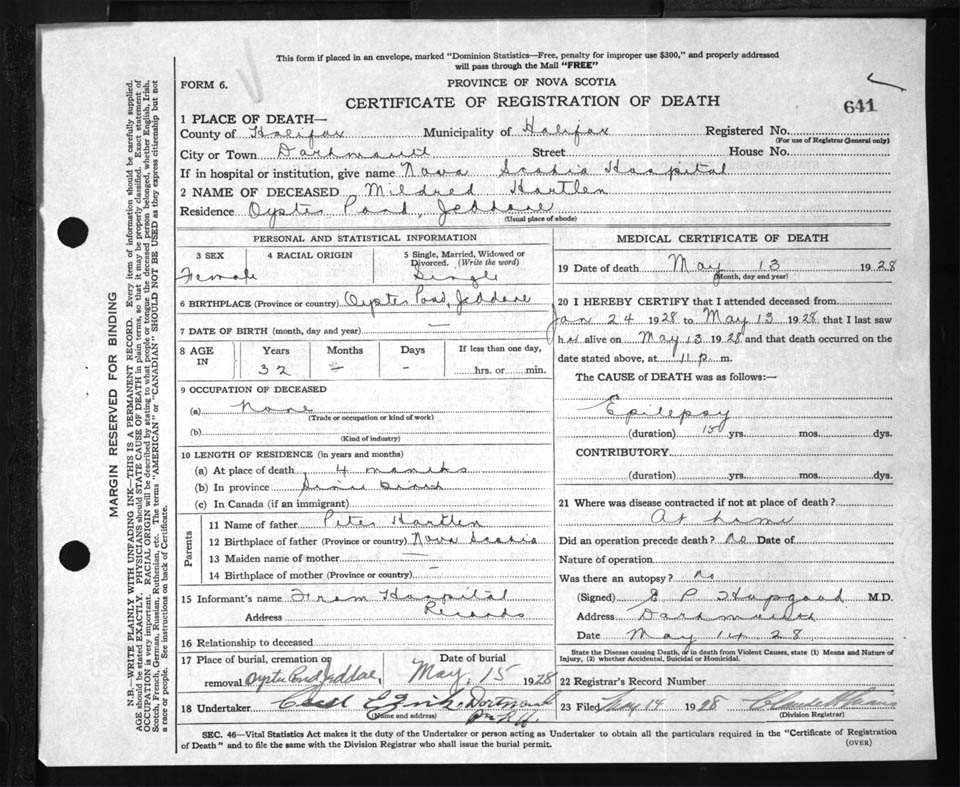 This form if placed in an envelope, marked "Dominion Statistics—Free, penalty for improper use $300," and properly addressed
will pass through the Mail "FREE"
FORM 6.
PROVINCE OF NOVA SCOTIA
CERTIFICATE OF REGISTRATION OF DEATH
641
1 PLACE OF DEATH—
County of Halifax Municipality of Halifax Registered No.
(For use of Registrar General only)
City or Town Dartmouth Street House No.
If in hospital or institution, give name Nova Scotia Hospital
2 NAME OF DECEASED Mildred Hartlen
Residence Oyster Pond, Jeddore
(Usual place of abode)
PERSONAL AND STATISTICAL INFORMATION
3 SEX 4 RACIAL ORIGIN 5 Single, Married, Widowed or
Divorced. (Write the word)
Female Single
6 BIRTHPLACE (Province or country) Oyster Pond, Jeddore
7 DATE OF BIRTH (month, day and year) —
8 AGE IN Years Months Days If less than one day,
32 – – hrs. or min.
9 OCCUPATION OF DECEASED
(a) None
(Trade or occupation or kind of work)
(b)
(Kind of industry)
10 LENGTH OF RESIDENCE (in years and months)
(a) At place of death 4 months
(b) In province Since birth
(c) In Canada (if an immigrant)
Parents
11 Name of father Peter Hartlen
12 Birthplace of father (Province or country) Nova Scotia
13 Maiden name of mother —
14 Birthplace of mother (Province or country) —
15 Informant's name From Hospital
Address Records
16 Relationship to deceased
17 Place of burial, cremation or Date of burial
removal Oyster Pond Jeddore May 15 1928
18 Undertaker Cecil E Zink
(Name and address)
MEDICAL CERTIFICATE OF DEATH
19 Date of death May 13 1928
(Month, day and year)
20 I HEREBY CERTIFY that I attended deceased from
Jan 24 1928 to May 13 1928 that I last saw
her alive on May 13 1928 and that death occurred on the
date stated above, at 11 p m.
The CAUSE of DEATH was as follows:—
Epilepsy
(duration) 15 yrs. mos. dys.
CONTRIBUTORY
(duration) yrs. mos. dys.
21 Where was disease contracted if not at place of death?
At home
Did an operation precede death? No Date of
Nature of operation
Was there an autopsy? No
(Signed) E P Hopgood M.D.
Address Dartmouth
Date May 14 28
State the Disease causing Death, or in death from Violent Causes, state (1) Means and Nature of
Injury, (2) whether Accidental, Suicidal or Homicidal.
22 Registrar's Record Number
23 Filed May 14 1928
(Division Registrar)
SEC. 46—Vital Statistics Act makes it the duty of the Undertaker or person acting as Undertaker to obtain all the particulars required in the "Certificate of Registration
of Death" and to file the same with the Division Registrar who shall issue the burial permit.
(OVER)
MARGIN RESERVED FOR BINDING
N.B.—WRITE PLAINLY WITH UNFADING INK—THIS IS A PERMANENT RECORD. Every item of information should be carefully supplied.
AGE should be stated EXACTLY. PHYSICIANS should STATE CAUSE OF DEATH in plain terms, so that it may be properly classified. Exact statement of
OCCUPATION is very important. RACIAL ORIGIN will be described by stating to what people or tongue the deceased person belonged, whether English, Irish,
Scotch, French, German, Russian, Ruthenian, etc. The terms "AMERICAN" or "CANADIAN" SHOULD NOT BE USED as they express citizenship but not
a race or people. See instructions on back of Certificate.